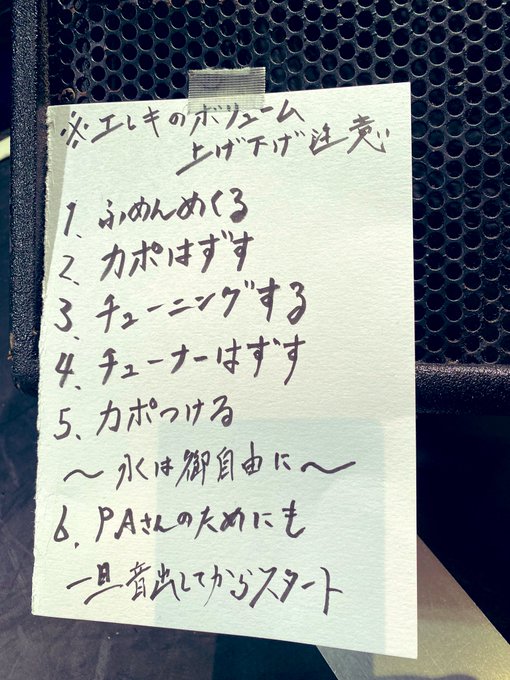 ※エレキのボリューム
上げ下げ注意
1. ふめんめくる
2. カポはずす
3. チューニングする
4. チューナーはずす
5. カポつける
～水は御自由に～
6. PAさんのためにも
一旦音出ししてからスタート